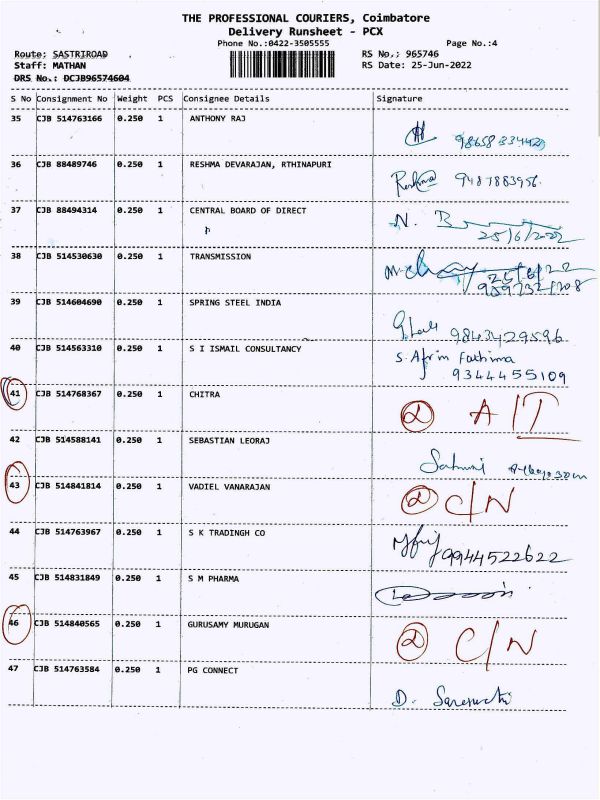 THE PROFESSIONAL COURIERS, Coimbatore
Delivery Runsheet - PCX
Phone No.:0422-3505555 Page No.:4
Route: SASTRIROAD RS No.: 965746
Staff: MATHAN RS Date: 25-Jun-2022
DRS No.: DCJB96574604
S No Consignment No Weight PCS Consignee Details Signature
35 CJB 514763166 0.250 1 ANTHONY RAJ
36 CJB 88489746 0.250 1 RESHMA DEVARAJAN, RTHINAPURI
Reshma 9487883956
37 CJB 88494314 0.250 1 CENTRAL BOARD OF DIRECT
N. B
25/6/2022
38 CJB 514530630 0.250 1 TRANSMISSION
25/6/22
39 CJB 514604690 0.250 1 SPRING STEEL INDIA
9843429596
40 CJB 514563310 0.250 1 S I ISMAIL CONSULTANCY
S. Afrin Fathima
9344455109
41 CJB 514768367 0.250 1 CHITRA
A/T
42 CJB 514588141 0.250 1 SEBASTIAN LEORAJ
43 CJB 514841814 0.250 1 VADIEL VANARAJAN
C/N
44 CJB 514763967 0.250 1 S K TRADINGH CO
9944522622
45 CJB 514831849 0.250 1 S M PHARMA
46 CJB 514840565 0.250 1 GURUSAMY MURUGAN
C/N
47 CJB 514763584 0.250 1 PG CONNECT